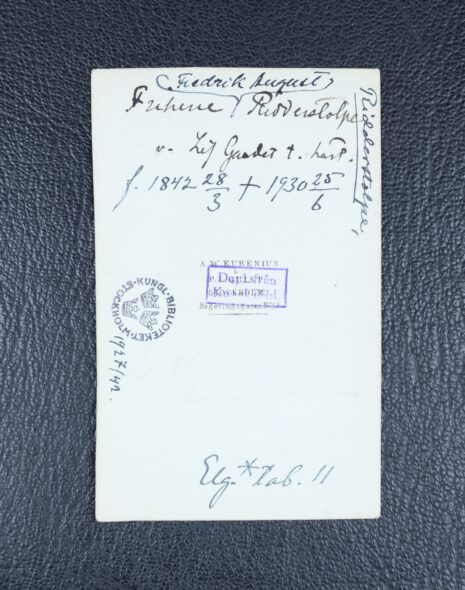 (Fredrik August)
Friherre Ridderstolpe
v. Lif Gardet t. häst.
f. 1842 28/3 + 1930 25/6
Ridderstolpe,
A. W. EURENIUS
STOCKHOLM.
Regeringsgatan
KUNGL. BIBLIOTEKET STOCKHOLM
1927/42.
Elg.* tab. 11